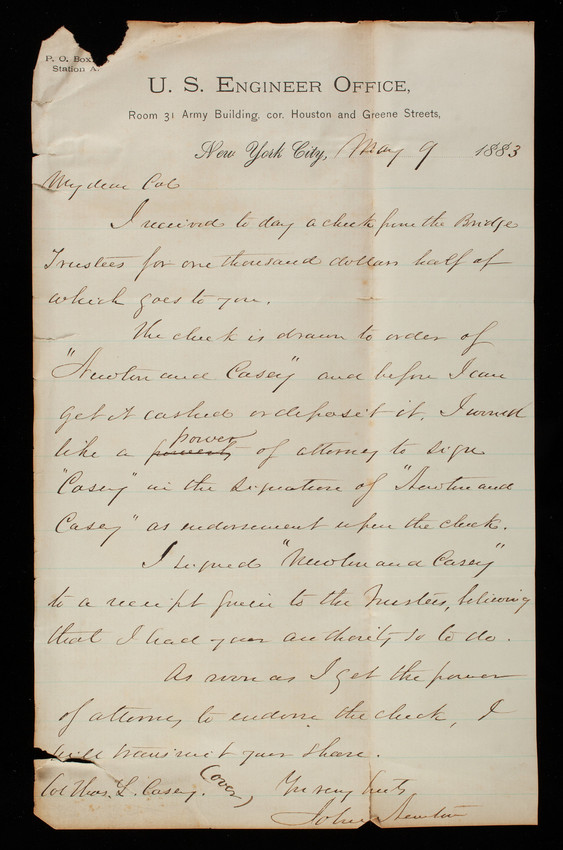 P. O. Box
Station A.
U. S. ENGINEER OFFICE,
Room 31 Army Building, cor. Houston and Greene Streets,
New York City, May 9 1883
My dear Col
I received to day a check from the Bridge
Trustees for one thousand dollars half of
which goes to you.
The check is drawn to order of
"Newton and Casey" and before I can
get it cashed or deposit it, I would
like a power of attorney to sign
"Casey" in the signature of "Newton and
Casey" as endorsement upon the check.
I signed "Newton and Casey"
to a receipt given to the Trustees, believing
that I had your authority so to do.
As soon as I get the power
of attorney to endorse the check, I
will transmit your share.
Col Thos. L. Casey. (over) Yrs very truly
John Newton